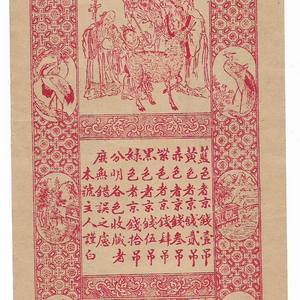 藍色者京錢壹吊
黃色者京錢貳吊
赤色者京錢叁吊
紫色者京錢肆吊
黑色者京錢伍吊
綠色者京錢拾吊
分明各色收藏者
庶無錯誤之慮
本號主人謹白